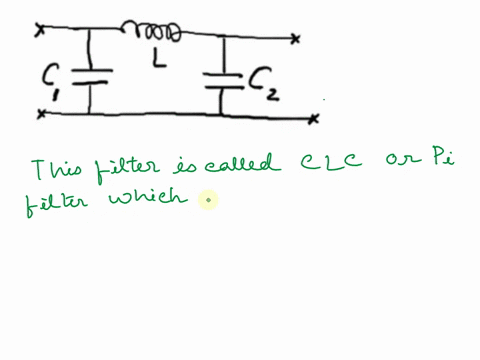 C1
L
C2
This filter is called CLC or Pi
filter which